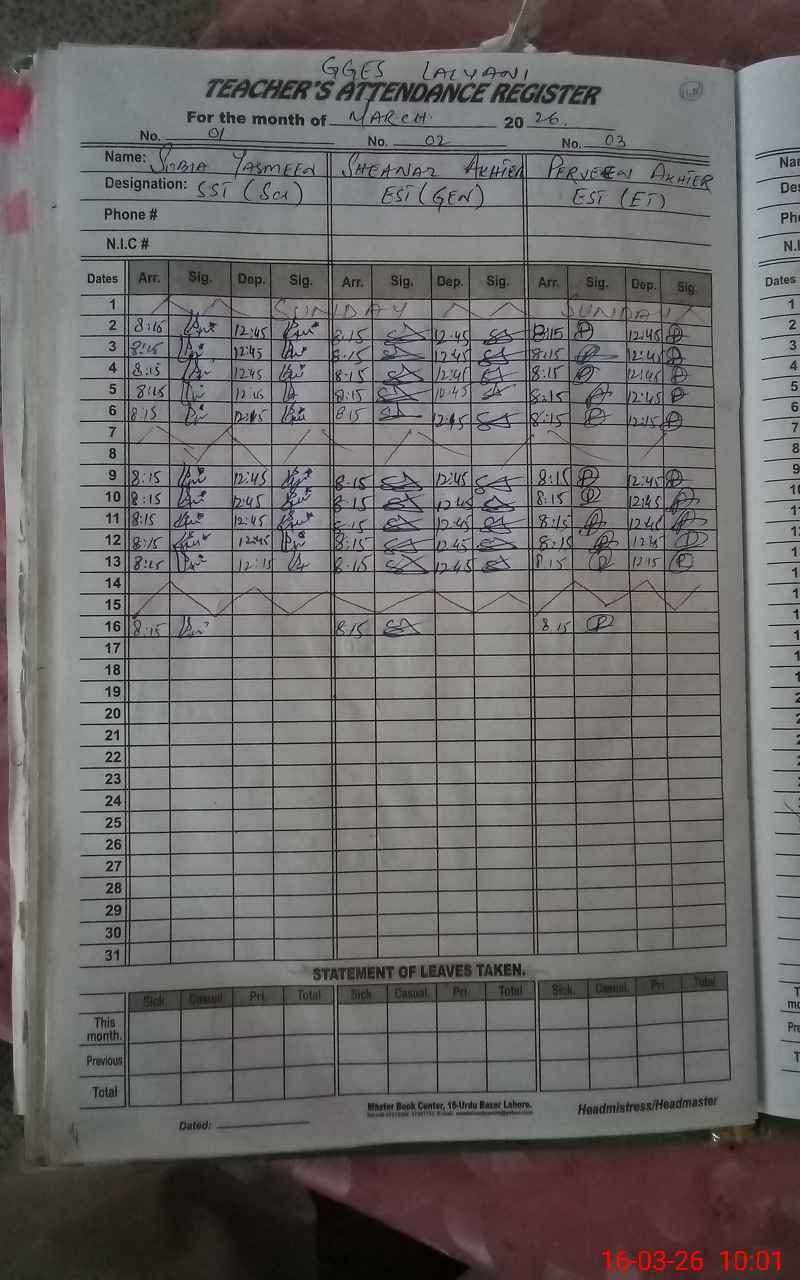 GGES LALYANI
TEACHER'S ATTENDANCE REGISTER
For the month of MARCH. 2026.
No. 01 No. 02 No. 03
Name: SOBIA YASMEEN SHEANAZ AKHTER PERVEEN AKHTER
Designation: SST (Sci) EST (GEN) EST (ET)
Phone #
N.I.C #
Dates Arr. Sig. Dep. Sig. Arr. Sig. Dep. Sig. Arr. Sig. Dep. Sig.
1 SUNDAY SUNDAY
2 8:15 12:45 8:15 12:45 8:15 12:45
3 8:15 12:45 8:15 12:45 8:15 12:45
4 8:15 12:45 8:15 12:45 8:15 12:45
5 8:15 8:15 8:15 12:45
6 8:15 12:15 8:15 12:15 8:15 12:15
7
8
9 8:15 12:45 8:15 12:45 8:15 12:45
10 8:15 12:45 8:15 12:45 8:15 12:45
11 8:15 12:45 8:15 12:45 8:15 12:45
12 8:15 12:45 8:15 12:45 8:15 12:45
13 8:15 12:15 8:15 12:45 8:15 12:15
14
15
16 8:15 8:15 8:15
17
18
19
20
21
22
23
24
25
26
27
28
29
30
31
STATEMENT OF LEAVES TAKEN.
Sick. Casual. Pri. Total Sick Casual. Pri. Total Sick. Casual. Pri. Total
This month.
Previous
Total
Master Book Center, 16-Urdu Bazar Lahore.
Dated: Headmistress/Headmaster
16-03-26 10:01